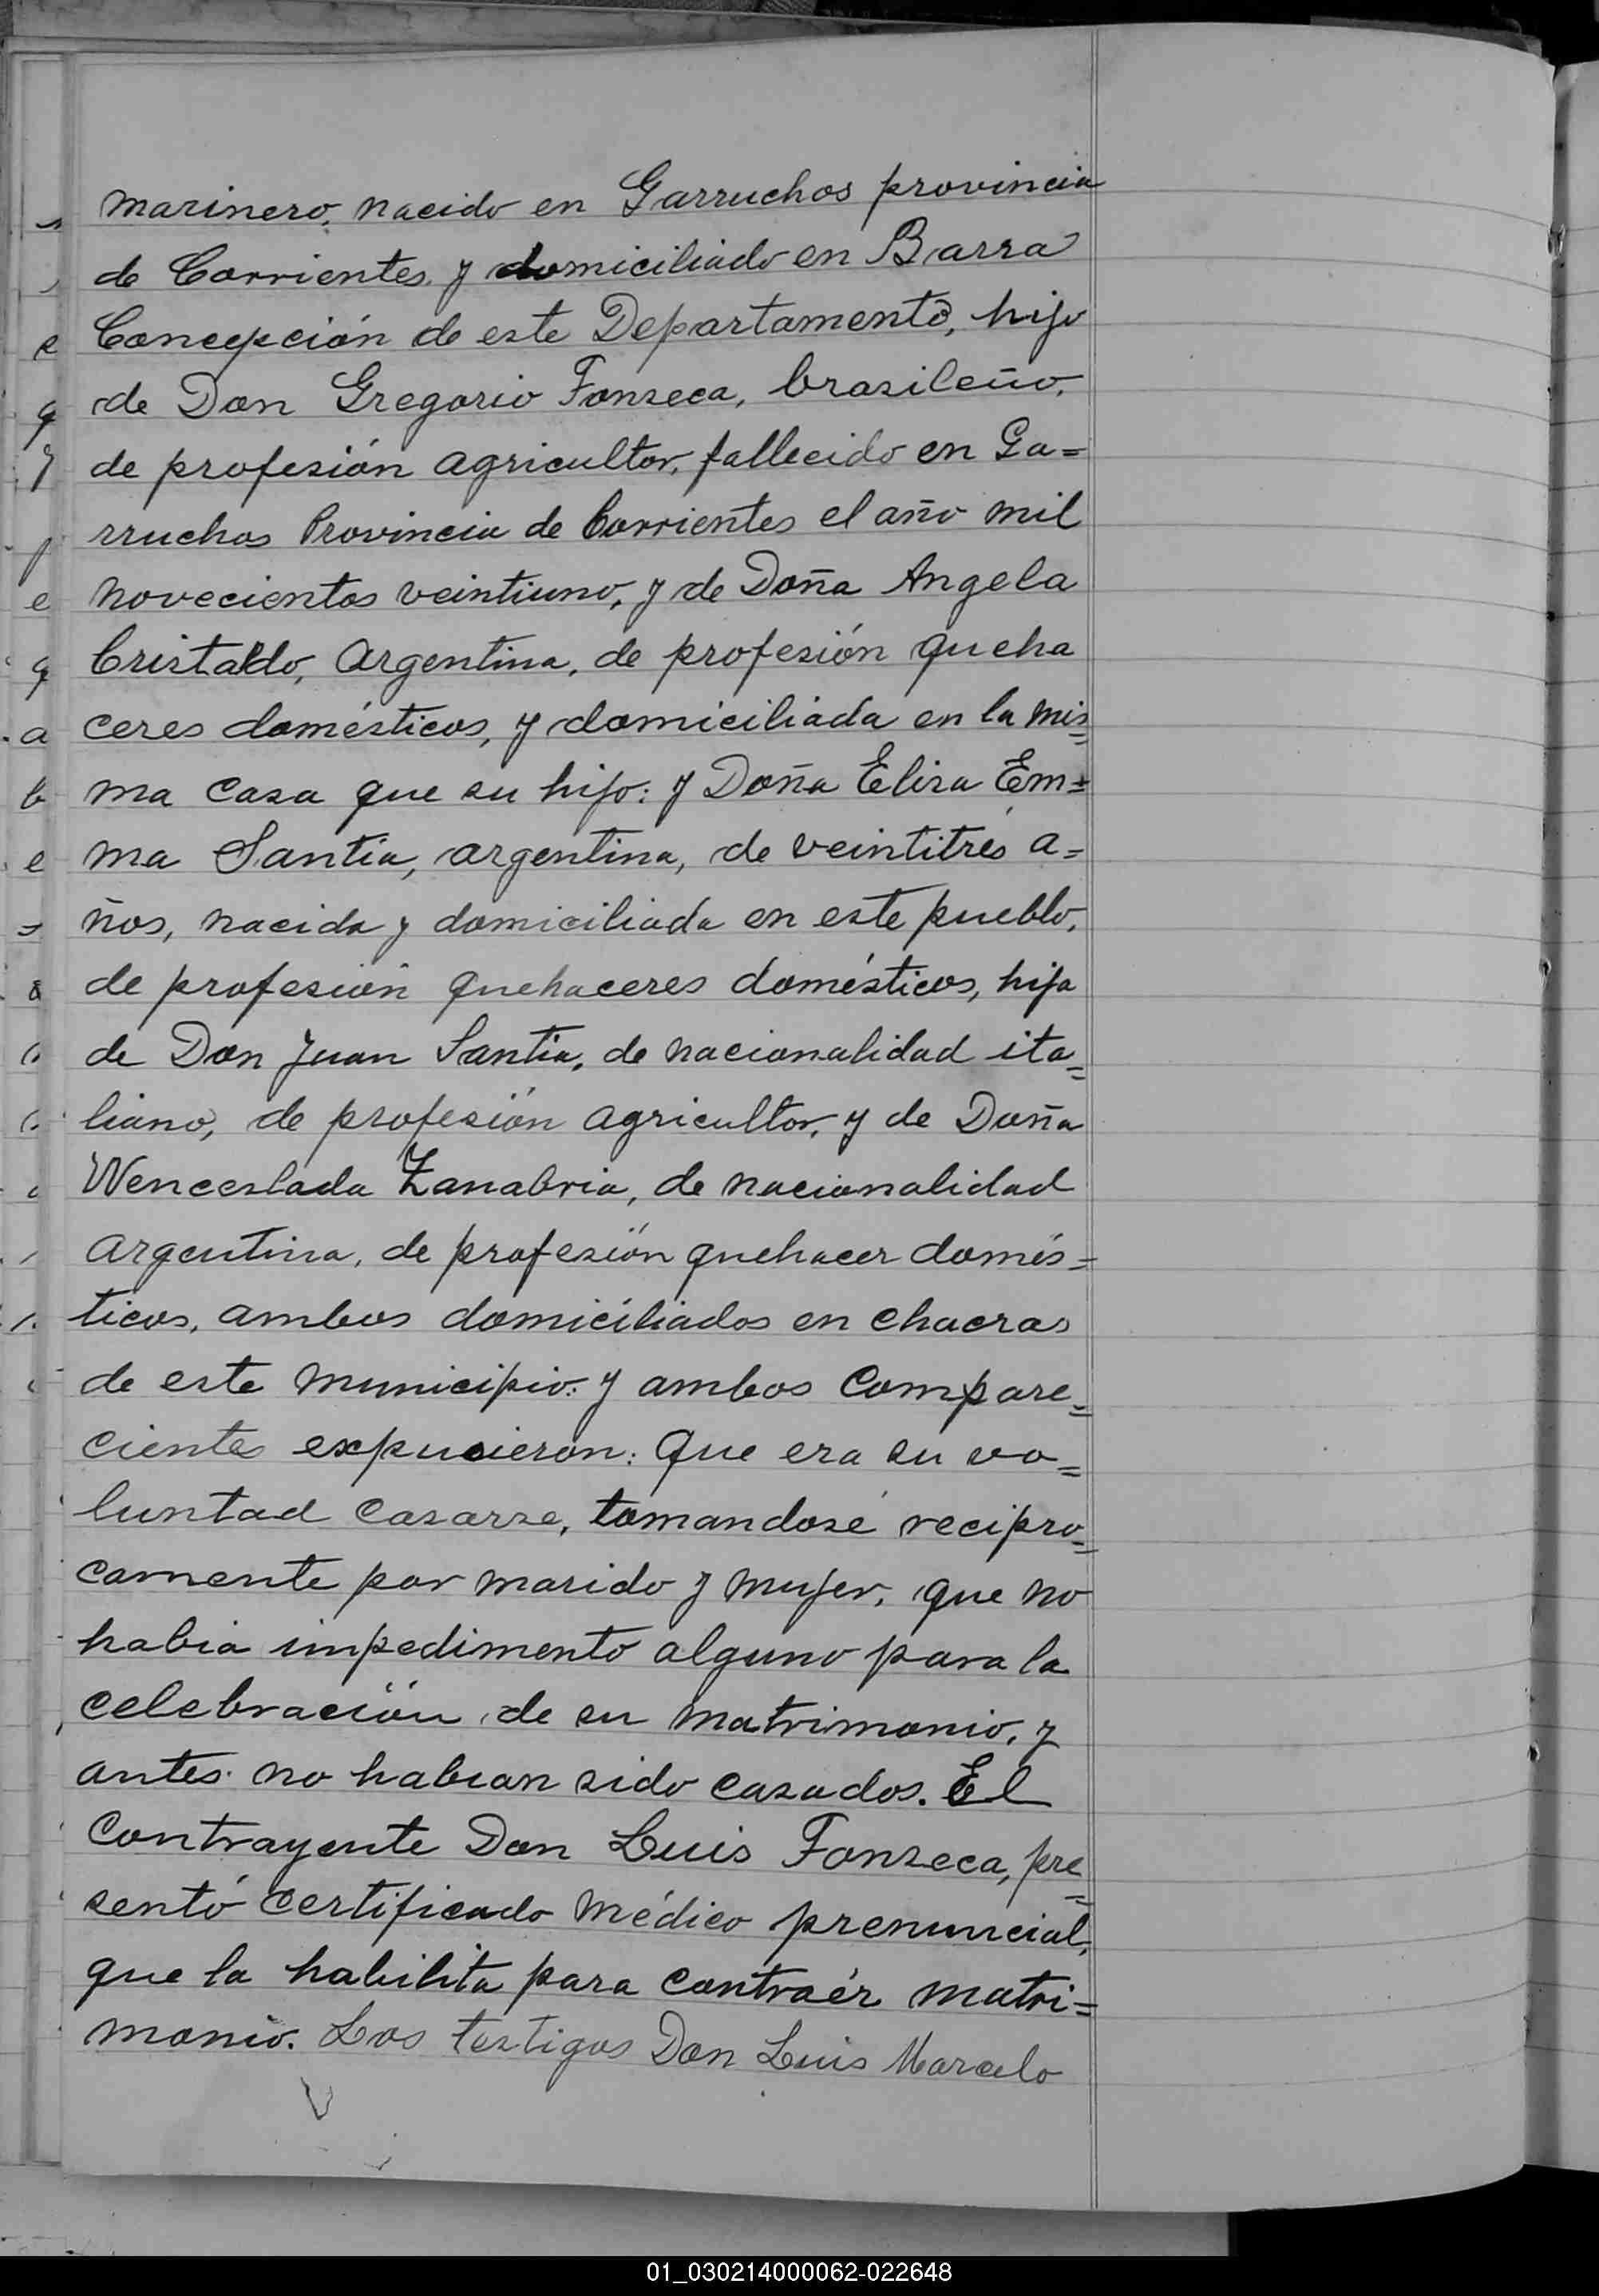 marinero, nacido en Garruchos provincia
de Corrientes, y domiciliado en Barra
Concepción de este Departamento, hijo
de Don Gregorio Fonseca, brasileño,
de profesión agricultor, fallecido en Ga=
rruchos Provincia de Corrientes el año mil
novecientos veintiuno, y de Doña Angela
Cristaldo, Argentina, de profesión queha
ceres domésticos, y domiciliada en la mis=
ma casa que su hijo: y Doña Elisa Em=
ma Santia, argentina, de veintitrés a=
ños, nacida y domiciliada en este pueblo,
de profesión quehaceres domésticos, hija
de Don Juan Santia, de nacionalidad ita=
liano, de profesión agricultor, y de Doña
Wenceslada Zanabria, de nacionalidad
argentina, de profesión quehacer domés=
ticos, ambos domiciliados en chacras
de este municipio: y ambos compare=
cientes expusieron: Que era su vo=
luntad casarse, tomandosé recipro=
camente por marido y mujer, que no
habia impedimento alguno para la
celebración de su matrimonio, y
antes no habian sido casados. El
contrayente Don Luis Fonseca, pre=
sentó certificado médico prenuncial,
que la habilita para contraér matri=
monio. Los testigos Don Luis Marcelo
01_030214000062-022648